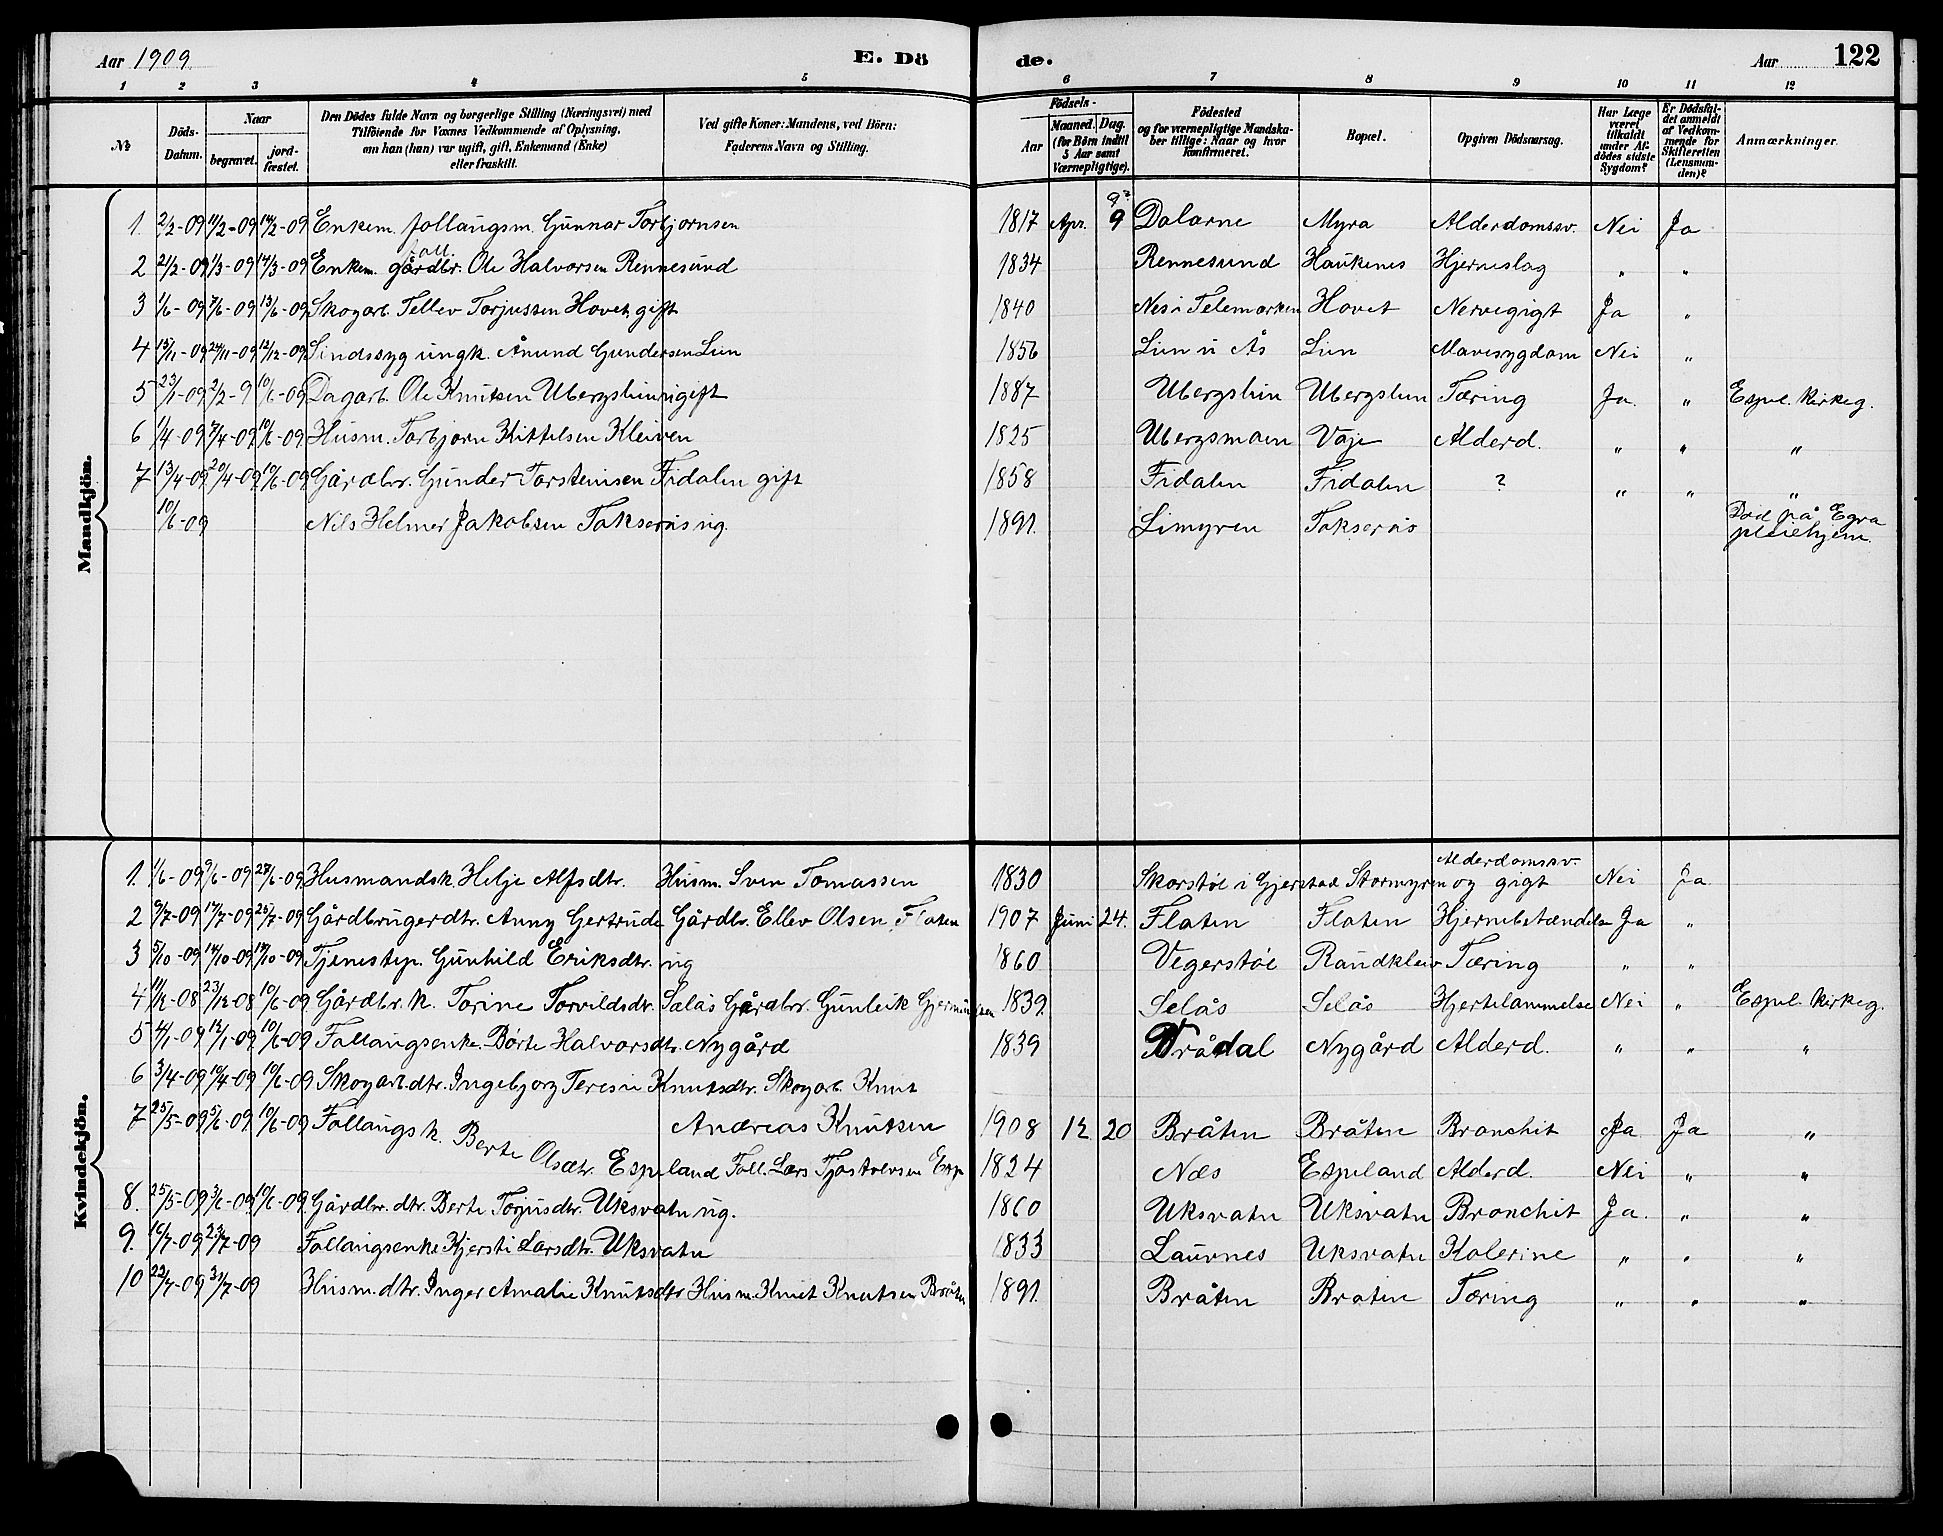 Aar 1909
E. Dö
de.
Aar
122
1 2 3 4 5 6 7 8 9 10 11 12
№
Döds-Datum.
Naar
begravet.
jord-fæstet.
Den Dödes fulde Navn og borgerlige Stilling (Næringsvei) med
Tilföiende for Voxnes Vedkommende af Oplysning,
om han (han) var ugift, gift, Enkemand (Enke)
eller fraskilt.
Ved gifte Koner: Mandens, ved Börn:
Faderens Navn og Stilling.
Födsels-
Aar
Maaned. Dag.
(for Börn indtil
5 Aar samt
Værnepligtige).
Födested
og for værnepligtige Mandska-
ber tillige: Naar og hvor
konfirmeret.
Bopæl.
Opgiven Dödsaarsag.
Har Læge
været
tilkaldt
under Af-
dödes sidste
Sygdom?
Er Dödsfal-
det anmeldt
af Vedkom-
mende for
Skifteretten
(Lensman-
den)?
Anmærkninger.
Mandkjön.
9?
1. 2/2-09 11/2-09 14/2-09 Enkem. follaugsm. Gunnar Torbjornsen 1817 Apr. 9 Dalarne Myra Alderdomssv. Nei Ja
foll.
2 21/2-09 1/3-09 14/3-09 Enkem. gårdbr. Ole Halvorsen Rennesund 1834 Rennesund Haukenes Hjerneslag " "
3 1/6-09 7/6-09 13/6-09 Skogarb. Tellev Torjussen Hovet gift 1840 Nes i Telemarken Hovet Nervegigt Ja "
4 15/11-09 24/11-09 12/12-09 Sindssyg ungk. Ånund Gundersen Lien 1856 Lien i Ås Lien Mavesygdom Nei "
5 23/1-09 2/2-9 10/6-09 Dagarb. Ole Knutsen Ubergslien ugift 1887 Ubergslien Ubergslien Tæring Ja. " Espel. Kirkeg.
6 1/4-09 7/4-09 10/6-09 Husm. Torbjorn Kittelsen Kleiven 1825 Ubergsmoen Vaje Alderd. " " "
7 13/4-09 20/4-09 10/6-09 Gårdbr. Gunder Torsteinsen Fidalen gift 1858 Fidalen Fidalen ? " " "
10/6-09 Nils Helmer Jakobsen Takserås ug. 1891. Limyren Takserås Död på Egra
pleiehjem.
Kvindekjön.
Alderdomssv.
1. 1/6-09 9/6-09 27/6-09 Husmandsk. Helje Alfsdtr. Husm. Sven Tomassen 1830 Skorstöl i Gjerstad Stormyren og gigt Nei Ja
2 9/7-09 17/7-09 25/7-09 Gårdbrugerdtr. Anny Gertrude Gårdbr. Ellev Olsen Flaten 1907 Juni 24. Flaten Flaten Hjernebetændelse Ja "
3 5/10-09 14/10-09 14/10-09 Tjenestep. Gunhild Eriksdtr. ug 1860 Vegerstöl Raudkleiv Tæring " "
4 14/12-08 23/12-08 10/6-09 Gårdbr. k. Torine Torvildsdtr. Selås Gårdbr. Gunleik Gjermundsen 1839 Selås Selås Hjertelammelse Nei " Espel. Kirkeg.
5 4/1-09 12/1-09 10/6-09 Follaugsenke. Börte Halvorsdtr. Nygård 1839 Vrådal Nygård Alderd. " " "
6 3/4-09 10/4-09 10/6-09 Skogarb.dtr. Ingebjorg Teresie Knutsdtr. Skogarb. Knut
Andreas Knutsen 1908 12 20 Bråten Bråten Bronchit Ja Ja "
7 25/5-09 5/6-09 10/6-09 Follaugs k. Berte Olsdtr. Espeland Foll. Lars Tjostolvsen Esp 1824 Næs Espeland Alderd. Nei " "
8. 25/5-09 3/6-09 10/6-09 Gårdbr. dtr. Berte Torjusdtr. Uksvatn ug. 1860 Uksvatn Uksvatn Bronchit Ja. " "
9. 16/7-09 23/7-09 Follaugsenke Kjersti Larsdtr. Uksvatn 1833 Laurnes Uksvatn Kolerine " " "
10 23/7-09 31/7-09 Husm. dtr. Inger Amalie Knutsdtr Husm. Knut Knutsen Bråten 1891. Bråten Bråten Tæring " " "